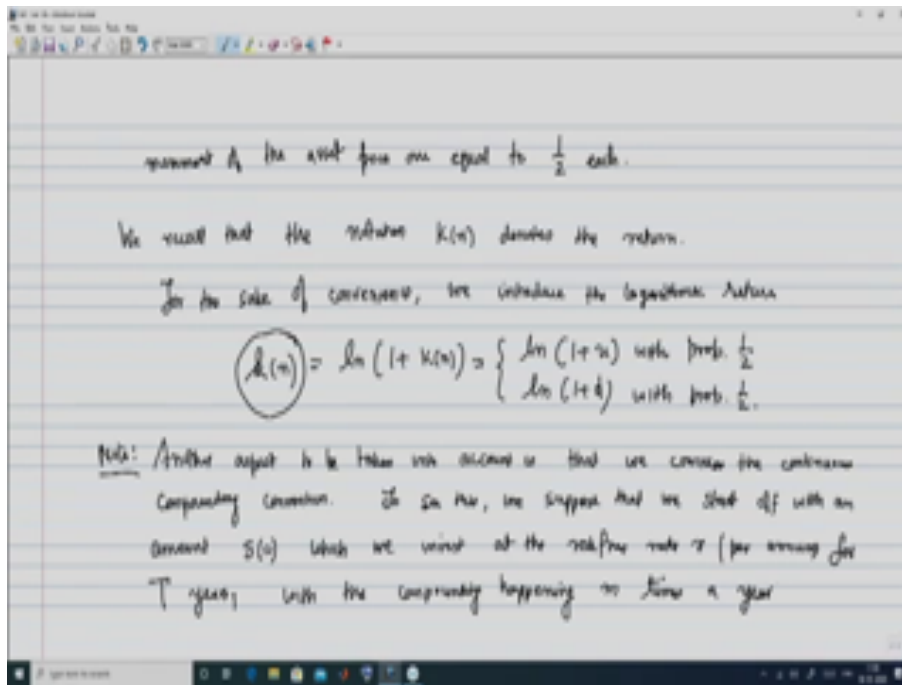 movement of the asset price are equal to 1/2 each.
We recall that the notation K(n) denotes the return.
For the sake of convenience, we introduce the logarithmic return
k(n) = ln (1 + K(n)) = { ln (1+u) with prob. 1/2
ln (1+d) with prob. 1/2.
Note: Another aspect to be taken into account is that we consider the continuous
compounding convention. To see this, we suppose that we start off with an
amount S(0) which we invest at the risk free rate r (per annum) for
T years, with the compounding happening m times a year